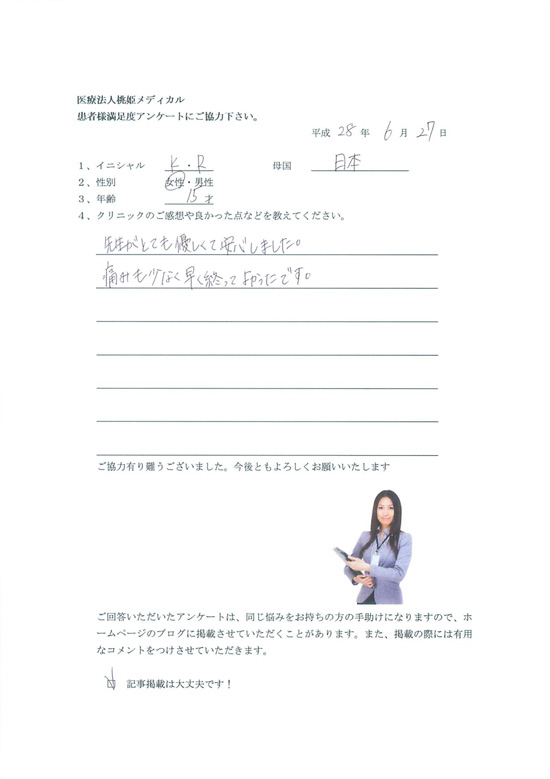 医療法人桃姫メディカル
患者様満足度アンケートにご協力下さい。
平成 28 年 6 月 27 日
1、イニシャル K・R 母国 日本
2、性別 女性・男性
3、年齢 15 才
4、クリニックのご感想や良かった点などを教えてください。
先生がとても優しくて安心しました。
痛みも少なく早く終ってよかったです。
ご協力有り難うございました。今後ともよろしくお願いいたします
ご回答いただいたアンケートは、同じ悩みをお持ちの方の手助けになりますので、ホ
ームページのブログに掲載させていただくことがあります。また、掲載の際には有用
なコメントをつけさせていただきます。
記事掲載は大丈夫です！